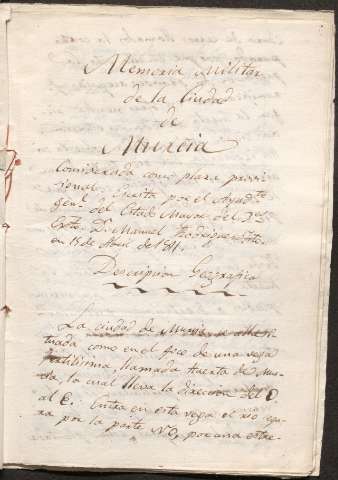 Memoria Militar
de la Ciudad
de
Murcia
Considerada como plaza provi-
sional. Escrita por el Ayudte
genl. del Estado Mayor del 3er
Exto. Dn. Manuel Rodriguez
en 15 de Abril de 1811.
Descripcion Geografica
La ciudad de Murcia se alla si-
tuada como en el foco de una vega
fertilisima, llamada Huerta de Mur-
cia, la cual lleva la direccion del O
al E. Entra en esta vega el rio
por la parte NO, por una estre-